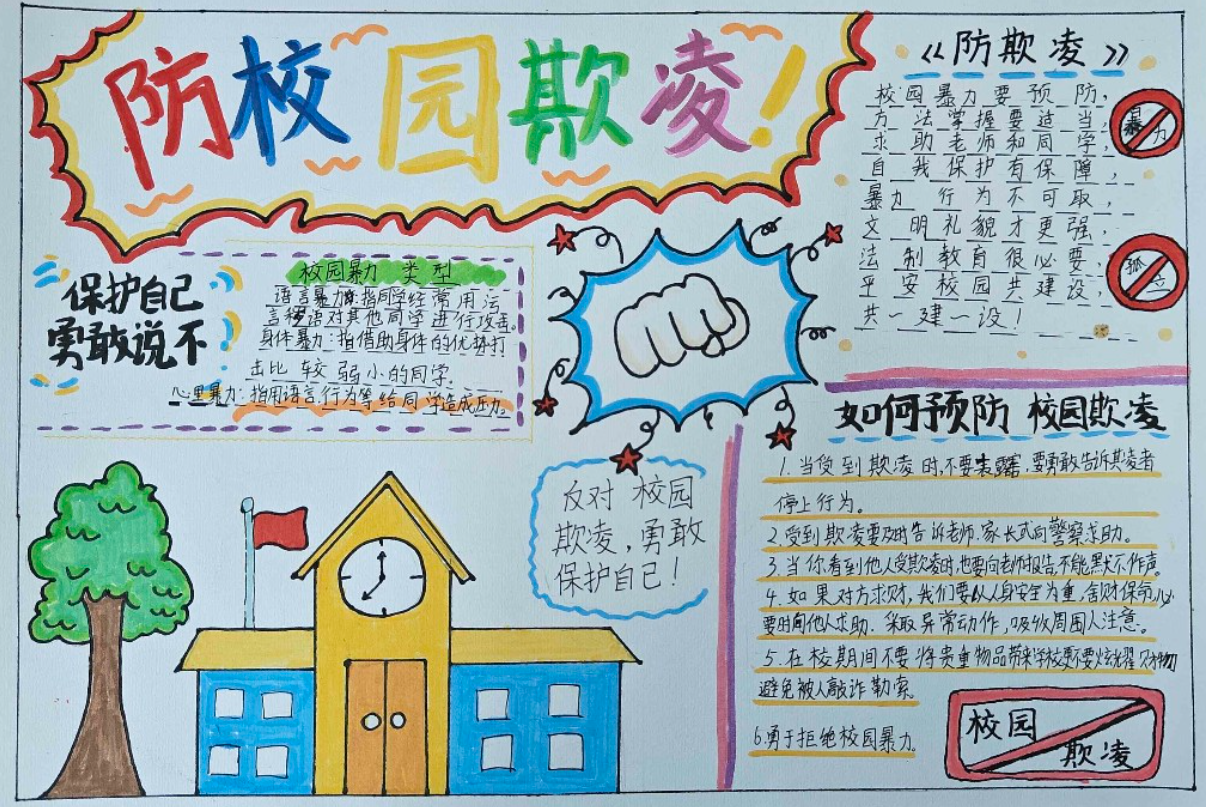 防校园欺凌!
《防欺凌》
校园暴力要预防,
方法掌握要适当,
求助老师和同学,
自我保护有保障,
暴力行为不可取,
文明礼貌才更强,
法制教育很必要,
平安校园共建设,
共一建一设!
暴力
孤立
保护自己
勇敢说不
校园暴力类型
语言暴力:指同学经常用污
言秽语对其他同学进行攻击。
身体暴力:指借助身体的优势打
击比较弱小的同学.
心里暴力:指用语言,行为等给同学造成压力。
反对校园
欺凌,勇敢
保护自己!
如何预防校园欺凌
1.当受到欺凌时,不要表露,要勇敢告诉欺凌者
停止行为。
2.受到欺凌要及时告诉老师.家长或向警察求助。
3.当你看到他人受欺凌时,也要向老师报告,不能默不作声。
4.如果对方求财,我们要以人身安全为重,舍财保命,必
要时向他人求助.采取异常动作,吸收周围人注意。
5.在校期间不要将贵重物品带来学校更不要炫耀财物
避免被人敲诈勒索.
6.勇于拒绝校园暴力.
校园
欺凌